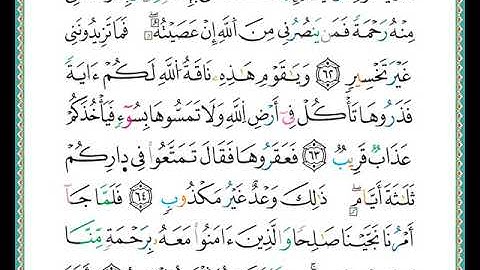 مِنْهُ رَحْمَةً فَمَن يَنصُرُنِي مِنَ اَللَّهِ إِنْ عَصَيْتُهُۥ فَمَا تَزِيدُونَنِي
غَيْرَ تَخْسِيرٍ ٦٢ وَيَٰقَوْمِ هَٰذِهِۦ نَاقَةُ اُللَّهِ لَكُمْ ءَايَةً
فَذَرُوهَا تَأْكُلْ فِيٓ أَرْضِ اِللَّهِ وَلَا تَمَسُّوهَا بِسُوٓءٍ فَيَأْخُذَكُمْ
عَذَابٌ قَرِيبٌ ٦٣ فَعَقَرُوهَا فَقَالَ تَمَتَّعُواْ فِي دِارِكُمْ
ثَلَٰثَةَ أَيَّامٍ ذَٰلِكَ وَعْدٌ غَيْرُ مَكْذُوبٍ ٦٤ فَلَمَّا جَآ
أَمْرُنَا نَجَّيْنَا صَٰلِحًا وَالَّذِينَ ءَامَنُواْ مَعَهُۥ بِرَحْمَةٍ مِّنَّا